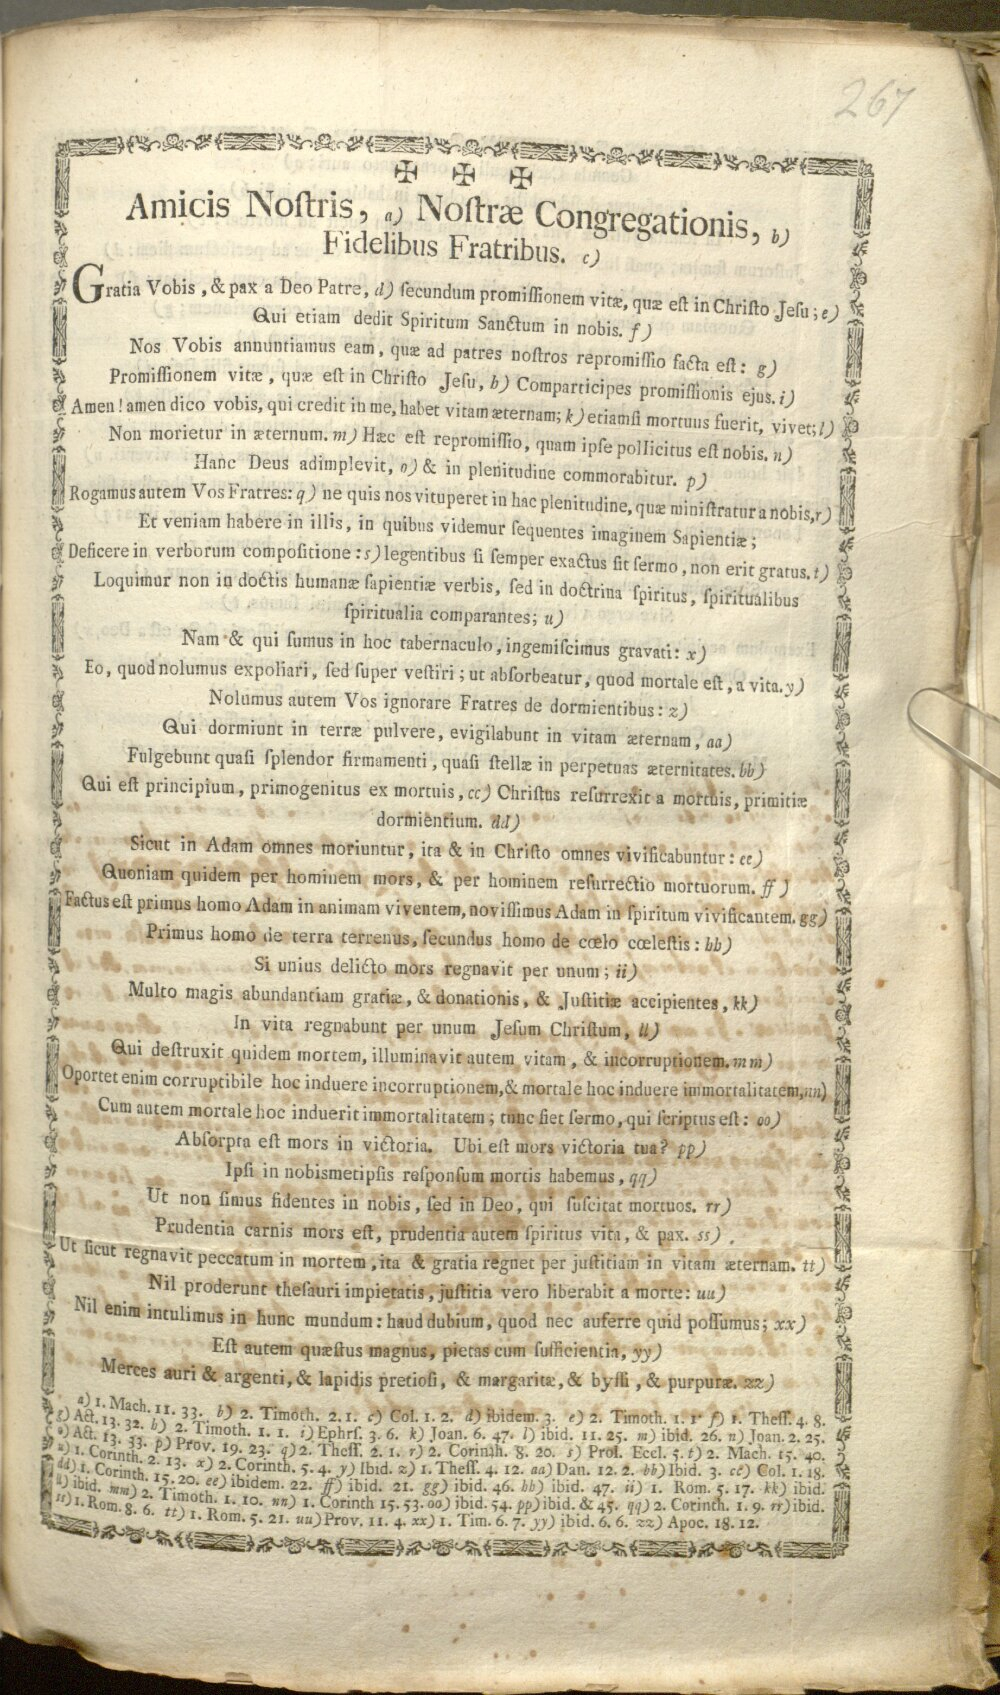 267
✠ ✠ ✠
Amicis Noſtris, a) Noſtræ Congregationis, b)
Fidelibus Fratribus. c)
Gratia Vobis, & pax a Deo Patre, d) ſecundum promiſſionem vitæ, quæ eſt in Chriſto Jeſu; e)
Qui etiam dedit Spiritum Sanctum in nobis. f)
Nos Vobis annuntiamus eam, quæ ad patres noſtros repromiſſio facta eſt: g)
Promiſſionem vitæ, quæ eſt in Chriſto Jeſu, h) Comparticipes promiſſionis ejus. i)
Amen! amen dico vobis, qui credit in me, habet vitam æternam; k) etiamſi mortuus fuerit, vivet; l)
Non morietur in æternum. m) Hæc eſt repromiſſio, quam ipſe pollicitus eſt nobis. n)
Hanc Deus adimplevit, o) & in plenitudine commorabitur. p)
Rogamus autem Vos Fratres: q) ne quis nos vituperet in hac plenitudine, quæ miniſtratur a nobis, r)
Et veniam habere in illis, in quibus videmur ſequentes imaginem Sapientiæ;
Deficere in verborum compoſitione: s) legentibus ſi ſemper exactus ſit ſermo, non erit gratus. t)
Loquimur non in doctis humanæ ſapientiæ verbis, ſed in doctrina ſpiritus, ſpiritualibus
ſpiritualia comparantes; u)
Nam & qui ſumus in hoc tabernaculo, ingemiſcimus gravati: x)
Eo, quod nolumus expoliari, ſed ſuper veſtiri; ut abſorbeatur, quod mortale eſt, a vita. y)
Nolumus autem Vos ignorare Fratres de dormientibus: z)
Qui dormiunt in terræ pulvere, evigilabunt in vitam æternam, aa)
Fulgebunt quaſi ſplendor firmamenti, quaſi ſtellæ in perpetuas æternitates. bb)
Qui eſt principium, primogenitus ex mortuis, cc) Chriſtus reſurrexit a mortuis, primitiæ
dormientium. dd)
Sicut in Adam omnes moriuntur, ita & in Chriſto omnes vivificabuntur: ee)
Quoniam quidem per hominem mors, & per hominem reſurrectio mortuorum. ff)
Factus eſt primus homo Adam in animam viventem, noviſſimus Adam in ſpiritum vivificantem. gg)
Primus homo de terra terrenus, ſecundus homo de cœlo cœleſtis: hh)
Si unius delicto mors regnavit per unum; ii)
Multo magis abundantiam gratiæ, & donationis, & Juſtitiæ accipientes, kk)
In vita regnabunt per unum Jeſum Chriſtum, ll)
Qui deſtruxit quidem mortem, illuminavit autem vitam, & incorruptionem. mm)
Oportet enim corruptibile hoc induere incorruptionem, & mortale hoc induere immortalitatem, nn)
Cum autem mortale hoc induerit immortalitatem; tunc fiet ſermo, qui ſcriptus eſt: oo)
Abſorpta eſt mors in victoria. Ubi eſt mors victoria tua? pp)
Ipſi in nobismetipſis reſponſum mortis habemus, qq)
Ut non ſimus fidentes in nobis, ſed in Deo, qui ſuſcitat mortuos. rr)
Prudentia carnis mors eſt, prudentia autem ſpiritus vita, & pax. ss)
Ut ſicut regnavit peccatum in mortem, ita & gratia regnet per juſtitiam in vitam æternam. tt)
Nil proderunt theſauri impietatis, juſtitia vero liberabit a morte: uu)
Nil enim intulimus in hunc mundum: haud dubium, quod nec auferre quid poſſumus; xx)
Eſt autem quæſtus magnus, pietas cum ſufficientia, yy)
Merces auri & argenti, & lapidis pretioſi, & margaritæ, & byſſi, & purpuræ. zz)
a) 1. Mach. 11. 33. b) 2. Timoth. 2. 1. c) Col. 1. 2. d) ibidem. 3. e) 2. Timoth. 1. 1. f) 1. Theſſ. 4. 8.
g) Act. 13. 32. h) 2. Timoth. 1. 1. i) Ephrſ. 3. 6. k) Joan. 6. 47. l) ibid. 11. 25. m) ibid. 26. n) Joan. 2. 25.
o) Act. 13. 33. p) Prov. 19. 23. q) 2. Theſſ. 2. 1. r) 2. Corinth. 8. 20. s) Prol. Eccl. 5. t) 2. Mach. 15. 40.
u) 1. Corinth. 2. 13. x) 2. Corinth. 5. 4. y) Ibid. z) 1. Theſſ. 4. 12. aa) Dan. 12. 2. bb) Ibid. 3. cc) Col. 1. 18.
dd) 1. Corinth. 15. 20. ee) ibidem. 22. ff) ibid. 21. gg) ibid. 46. hh) ibid. 47. ii) 1. Rom. 5. 17. kk) ibid.
ll) ibid. mm) 2. Timoth. 1. 10. nn) 1. Corinth 15. 53. oo) ibid. 54. pp) ibid. & 45. qq) 2. Corinth. 1. 9. rr) ibid.
ss) 1. Rom. 8. 6. tt) 1. Rom. 5. 21. uu) Prov. 11. 4. xx) 1. Tim. 6. 7. yy) ibid. 6. 6. zz) Apoc. 18. 12.